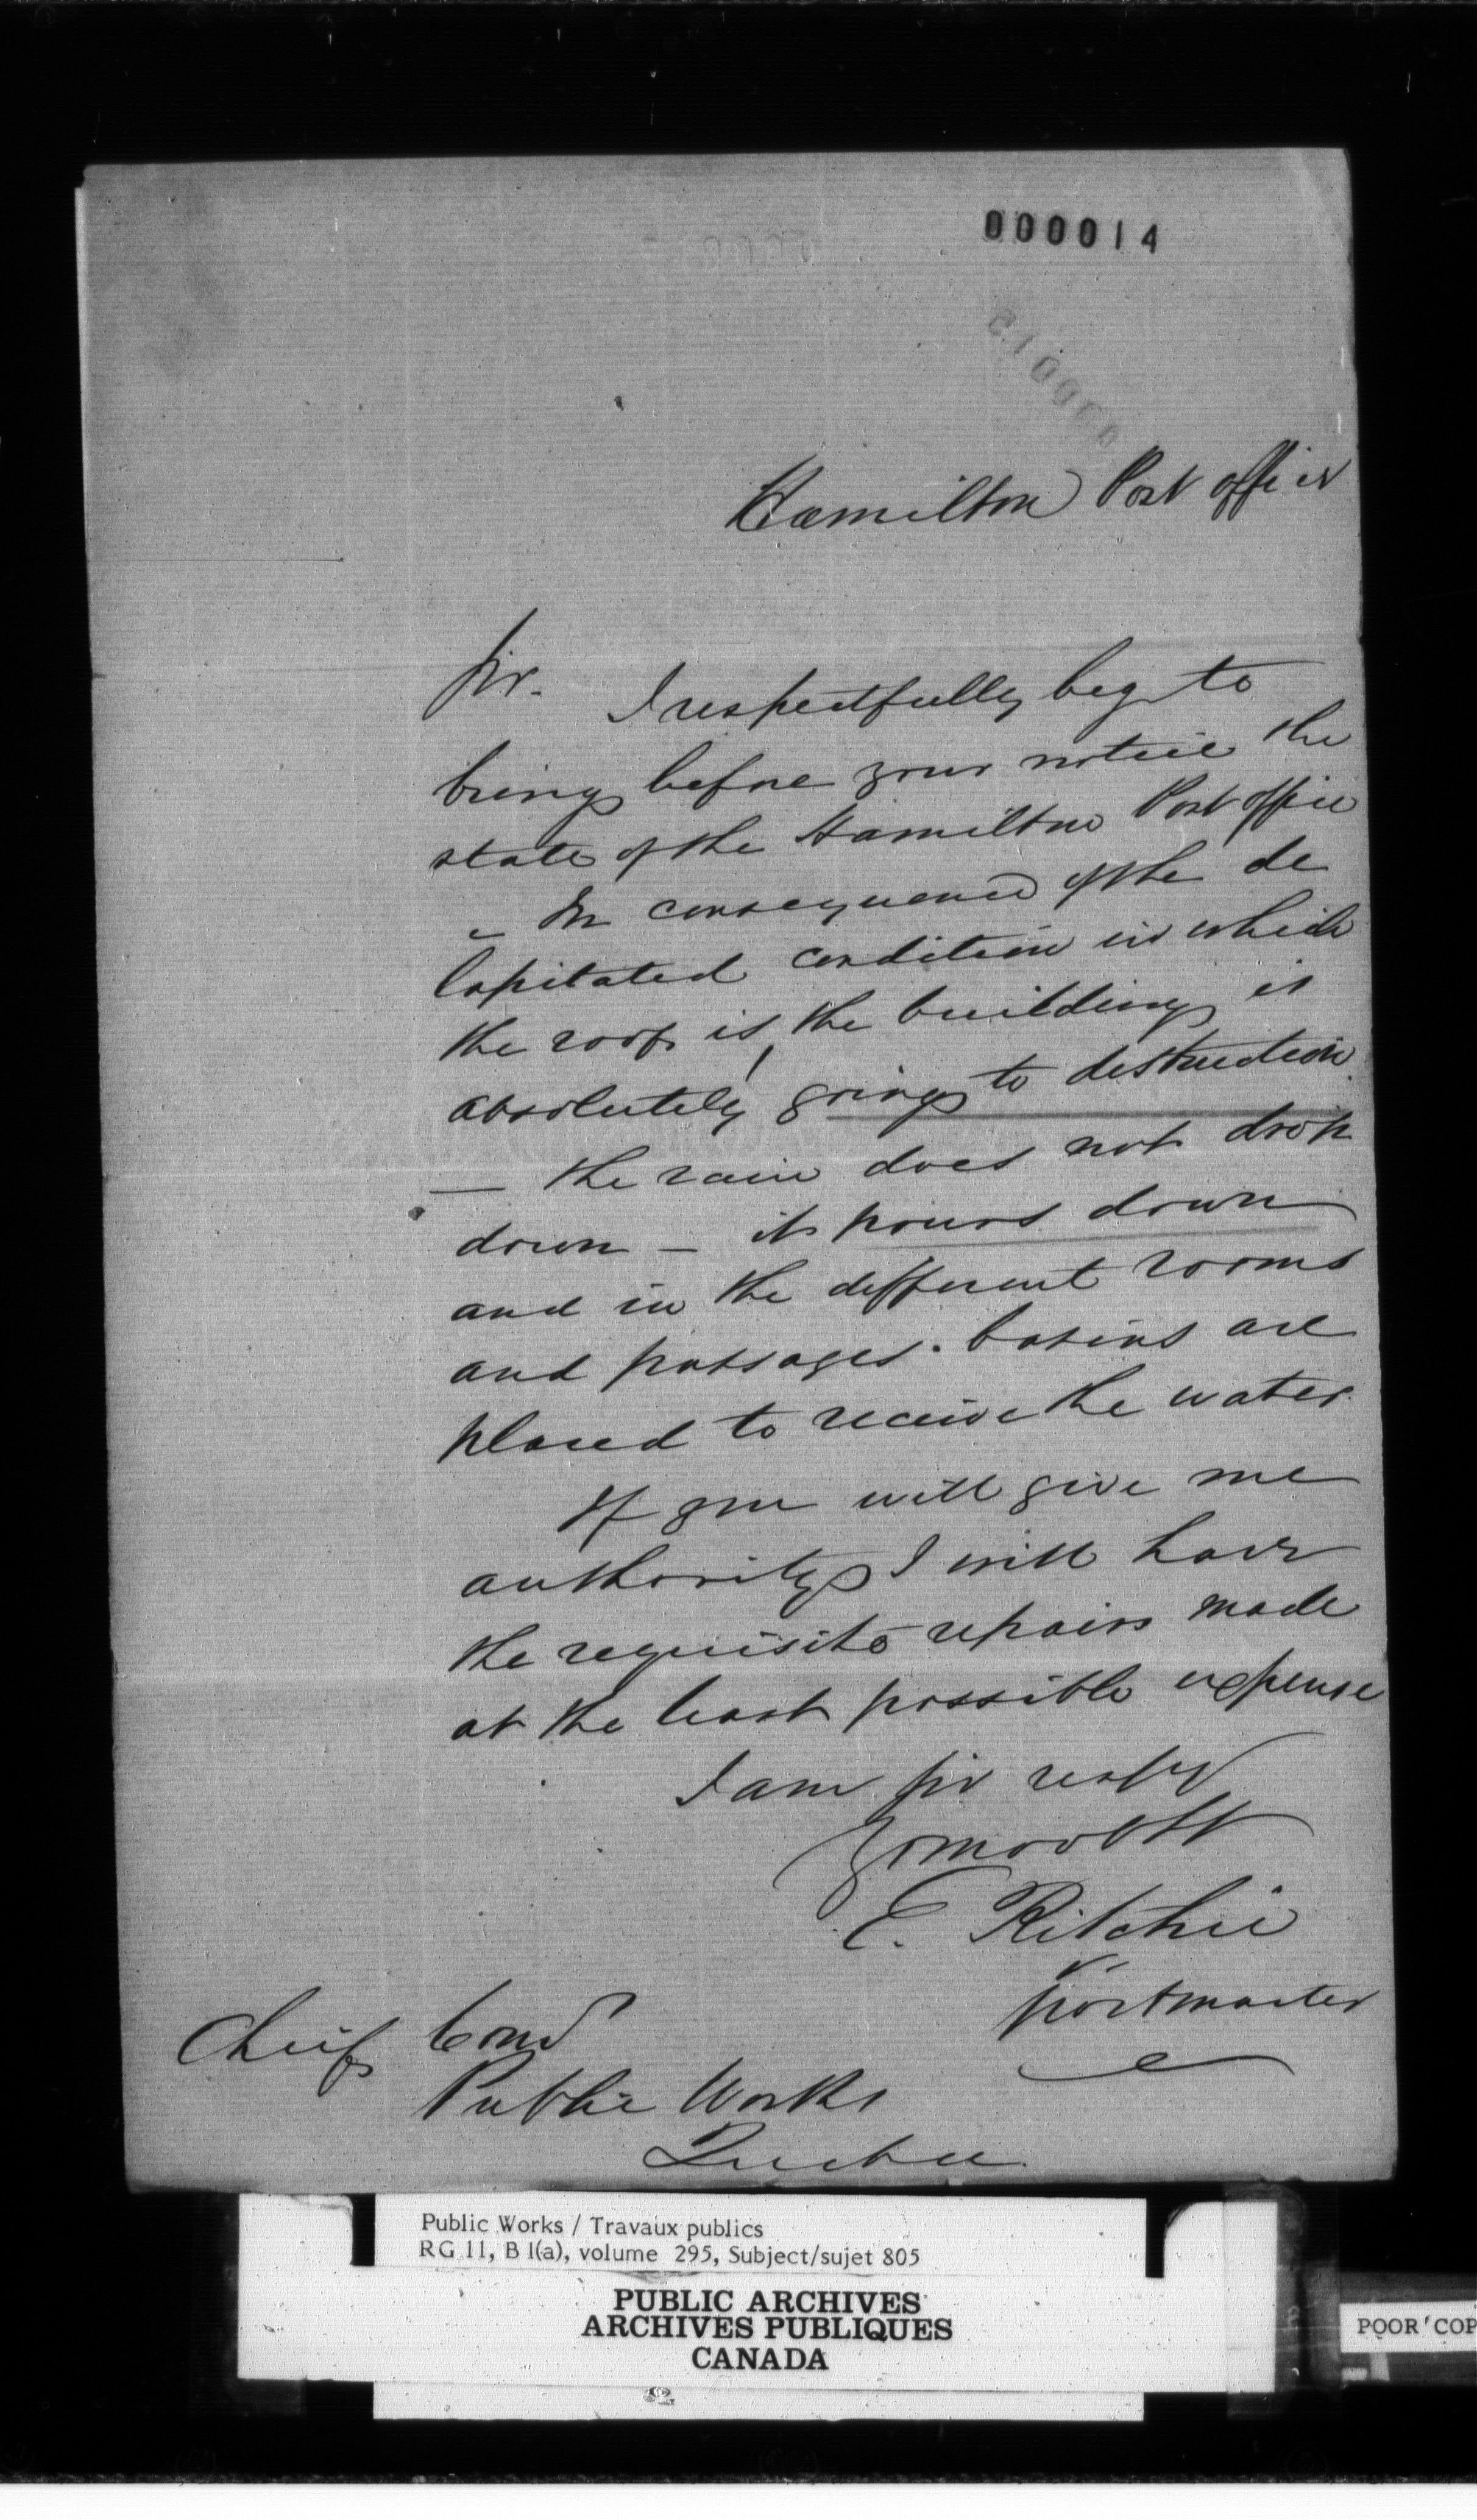 000014
Hamilton Post office
Sir. I respectfully beg to
bring before your notice the
state of the Hamilton Post office
- In consequence of the de
lapitated condition in which
the roof is, the building is
absolutely going to destruction
— the rain does not drop
down — it pours down
and in the different rooms
and passages. basins are
placed to receive the water.
If you will give me
authority I will have
the requisite repairs made
at the least possible expense
I am sir respy
E. Ritchie
postmaster
Chief Comr
Public Works
Quebec
Public Works / Travaux publics
RG 11, B 1(a), volume 295, Subject/sujet 805
PUBLIC ARCHIVES
ARCHIVES PUBLIQUES
CANADA
POOR COP